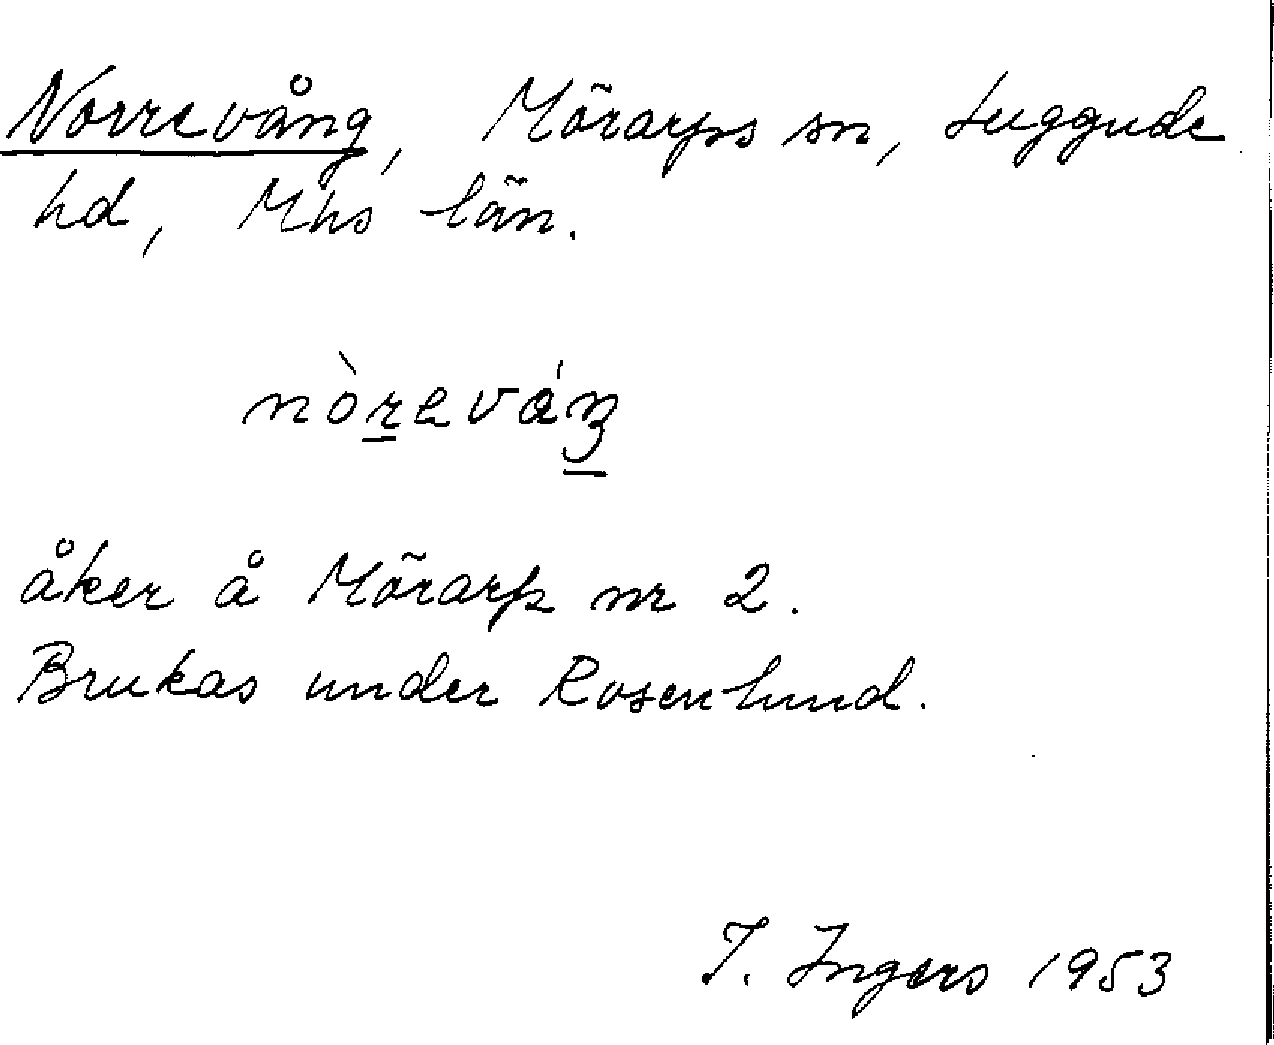 Norrevång, Mörarps sn, Luggude
hd, Mhs län.
nòreváŋ
åker å Mörarp nr 2.
Brukas under Rosenlund.
I. Ingers 1953